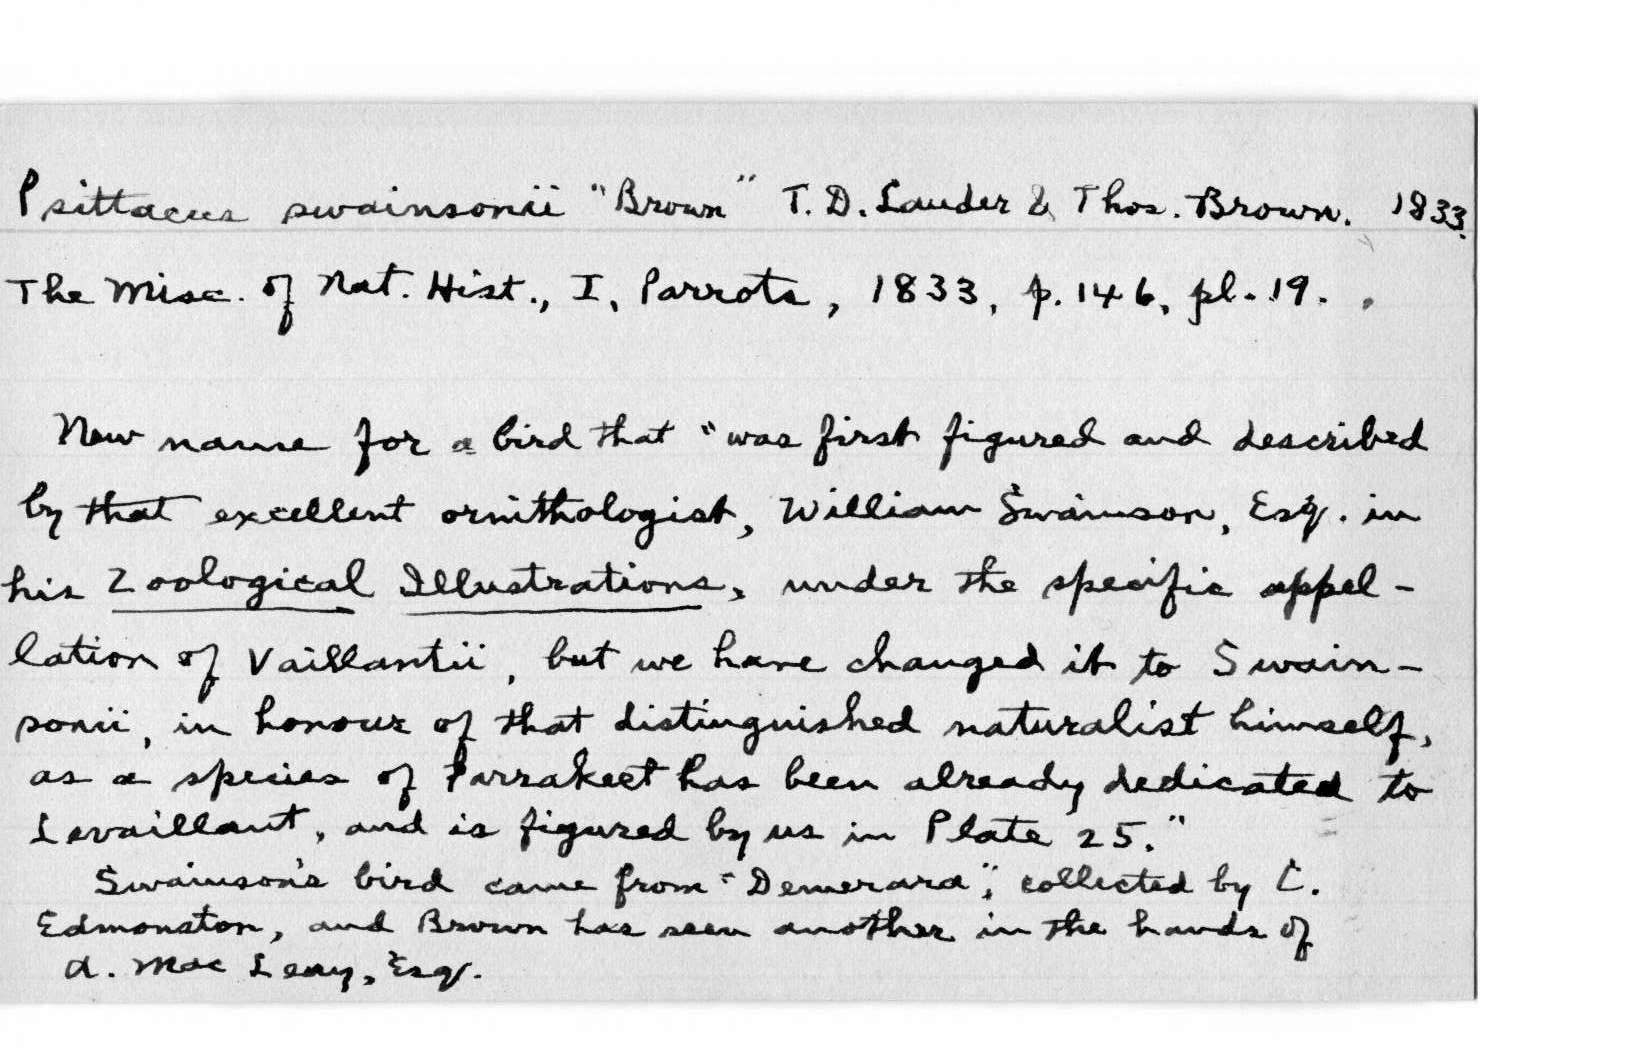 Psittacus swainsonii "Brown" T. D. Lauder & Thos. Brown. 1833.
The Misc. of Nat. Hist., I, Parrots, 1833, p. 146, pl. 19.
New name for a bird that "was first figured and described
by that excellent ornithologist, William Swainson, Esq. in
his Zoological Illustrations, under the specific appel-
lation of Vaillantii, but we have changed it to Swain-
sonii, in honour of that distinguished naturalist himself,
as a species of Parrakeet has been already dedicated to
Levaillant, and is figured by us in Plate 25."
Swainson's bird came from "Demerara", collected by C.
Edmonston, and Brown has seen another in the hands of
A. Mac Leay, Esq.